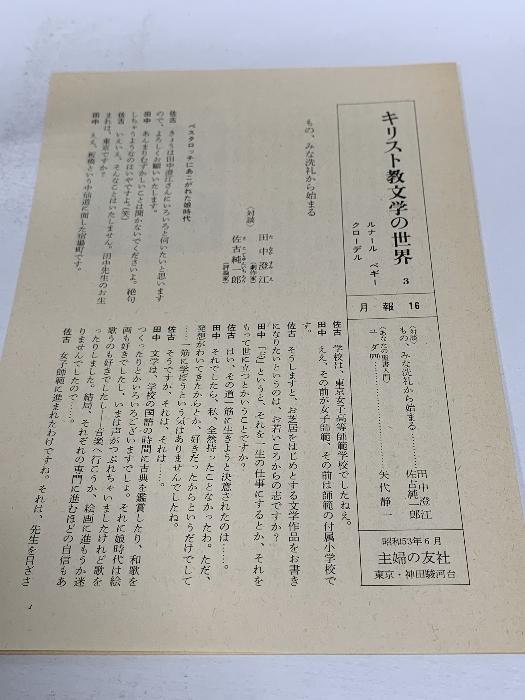 キリスト教文学の世界 3
ルナール ペギー
クローデル
月報 16
〈対談〉
もの、みな洗礼から始まる……………田中澄江
佐古純一郎
〈あなたの聖書入門〉
ユダ……………矢代静一
昭和53年6月
主婦の友社
東京・神田駿河台
もの、みな洗礼から始まる
〈対談〉
田中澄江
(劇作家)
佐古純一郎
(評論家)
ペスタロッチにあこがれた娘時代
佐古 きょうは田中澄江さんにいろいろと伺いたいと思います
ので、よろしくお願いいたします。
田中 あんまりむずかしいことは聞かないでくださいよ。絶句
しちゃうようなのはいやですよ。(笑)
佐古 いえいえ、そんなことはいたしません。田中先生のお生
まれは、東京ですか?
田中 ええ、板橋という中仙道に面した宿場町です。
佐古 学校は、東京女子高等師範学校でしたねえ。
田中 ええ、その前が女子師範、その前は師範の付属小学校で
す。
佐古 そうしますと、お芝居をはじめとする文学作品をお書き
になりたいというのは、お若いころからの志ですか?
田中 「志」というと、それを一生の仕事にするとか、それを
もって世に立つとかいうことですか?
佐古 はい、その道一筋に生きようと決意されたのは……。
田中 それでしたら、私、全然持ったことなかったわ。ただ、
発想がわいてきたからとか、好きだったからというだけでして
……一筋に学ぼうという気はありませんでしたね。
佐古 そうですか、それは、それは……。
田中 文学は、学校の国語の時間に古典を鑑賞したり、和歌を
つくったりとかいろいろございますでしょ。それに娘時代は絵
画も好きでしたし、いまは声がつぶれちゃいましたけれど歌を
歌うのも好きでしたし――音楽へ行こうか、絵画に進もうか迷
ったりしました。結局、それぞれの専門に進むほどの自信もあ
りませんでしたので……。
佐古 女子師範に進まれたわけですね。それは、先生を目ざさ
1